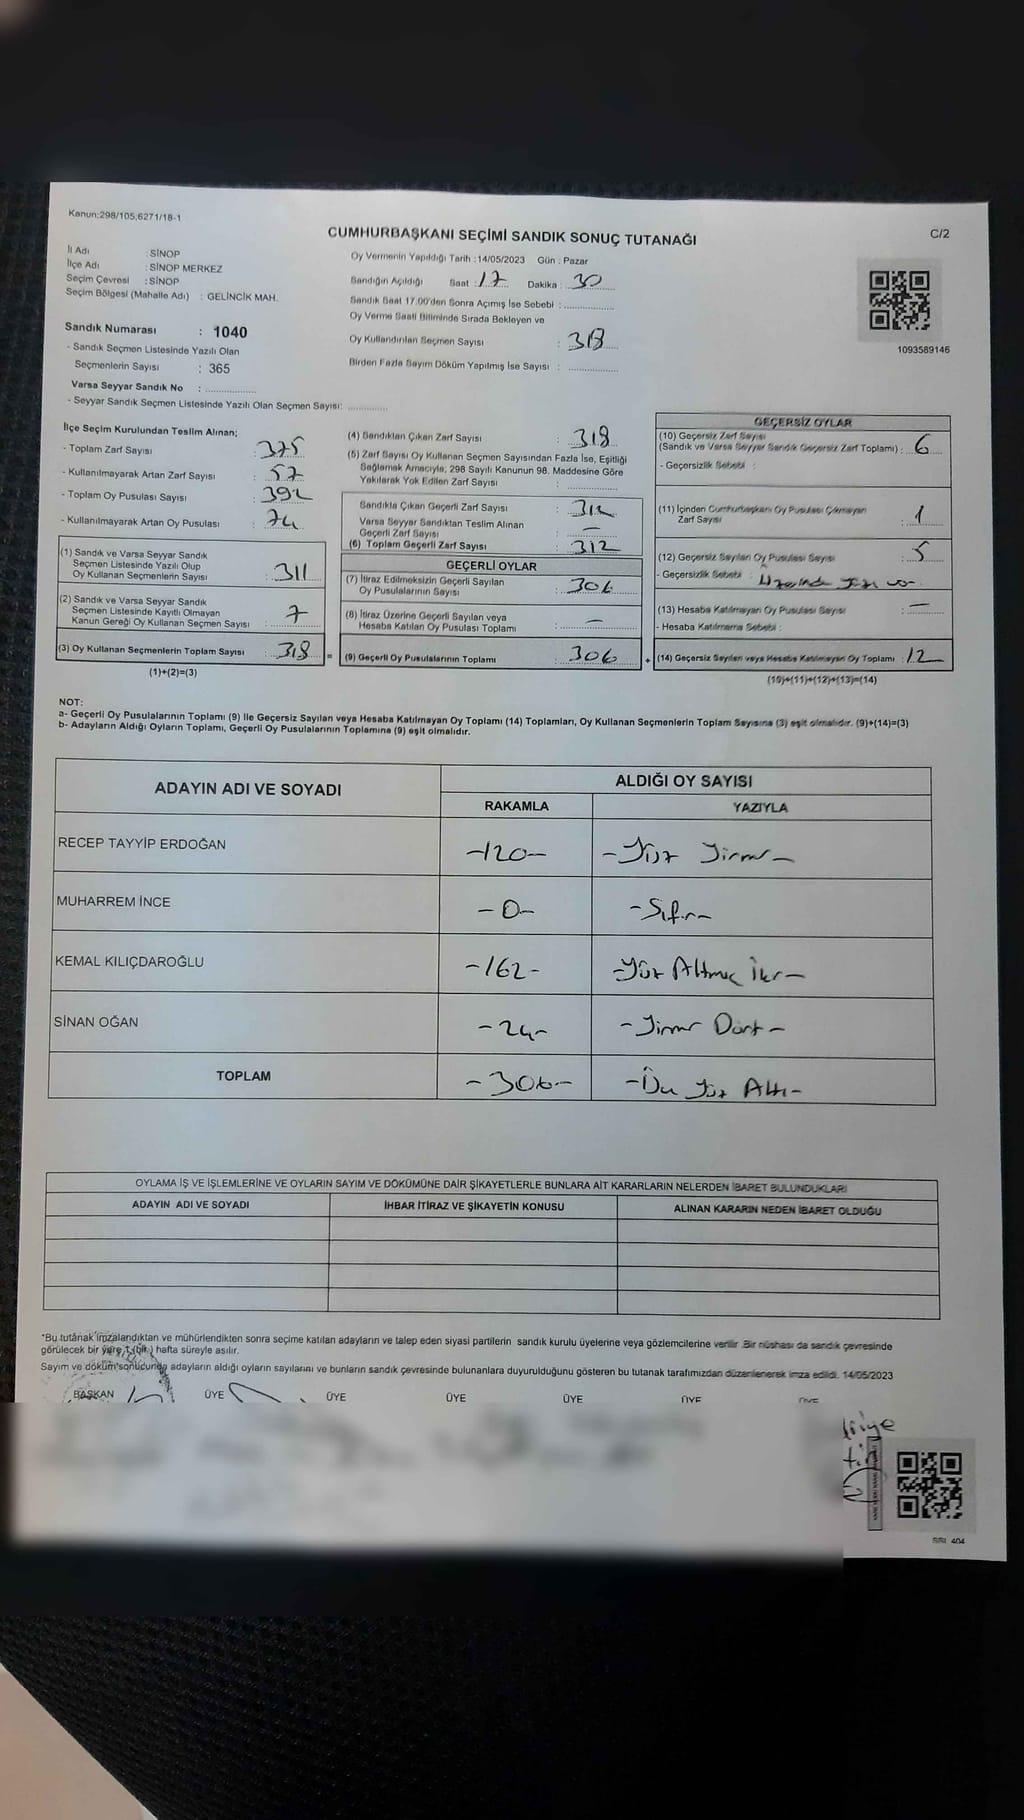 Kanun:298/105;6271/18-1
C/2
CUMHURBAŞKANI SEÇİMİ SANDIK SONUÇ TUTANAĞI
İl Adı : SİNOP
İlçe Adı : SİNOP MERKEZ
Seçim Çevresi : SİNOP
Seçim Bölgesi (Mahalle Adı) : GELİNCİK MAH.
Sandık Numarası : 1040
- Sandık Seçmen Listesinde Yazılı Olan
Seçmenlerin Sayısı : 365
Varsa Seyyar Sandık No : ..............
- Seyyar Sandık Seçmen Listesinde Yazılı Olan Seçmen Sayısı: ..............
Oy Vermenin Yapıldığı Tarih :14/05/2023 Gün : Pazar
Sandığın Açıldığı Saat : 17 Dakika : 30
Sandık Saat 17.00'den Sonra Açımış İse Sebebi : ..............
Oy Verme Saati Bitiminde Sırada Bekleyen ve
Oy Kullandırılan Seçmen Sayısı : 318
Birden Fazla Sayım Döküm Yapılmış İse Sayısı : ..............
1093589146
İlçe Seçim Kurulundan Teslim Alınan;
- Toplam Zarf Sayısı : 375
- Kullanılmayarak Artan Zarf Sayısı : 57
- Toplam Oy Pusulası Sayısı : 392
- Kullanılmayarak Artan Oy Pusulası : 74
(1) Sandık ve Varsa Seyyar Sandık
Seçmen Listesinde Yazılı Olup
Oy Kullanan Seçmenlerin Sayısı : 311
(2) Sandık ve Varsa Seyyar Sandık
Seçmen Listesinde Kayıtlı Olmayan
Kanun Gereği Oy Kullanan Seçmen Sayısı : 7
(3) Oy Kullanan Seçmenlerin Toplam Sayısı : 318 =
(1)+(2)=(3)
(4) Sandıktan Çıkan Zarf Sayısı : 318
(5) Zarf Sayısı Oy Kullanan Seçmen Sayısından Fazla İse, Eşitliği
Sağlamak Amacıyla, 298 Sayılı Kanunun 98. Maddesine Göre
Yakılarak Yok Edilen Zarf Sayısı : ..............
Sandıkla Çıkan Geçerli Zarf Sayısı : 312
Varsa Seyyar Sandıktan Teslim Alınan
Geçerli Zarf Sayısı : —
(6) Toplam Geçerli Zarf Sayısı : 312
GEÇERLİ OYLAR
(7) İtiraz Edilmeksizin Geçerli Sayılan
Oy Pusulalarının Sayısı : 306
(8) İtiraz Üzerine Geçerli Sayılan veya
Hesaba Katılan Oy Pusulası Toplamı : —
(9) Geçerli Oy Pusulalarının Toplamı : 306 +
GEÇERSİZ OYLAR
(10) Geçersiz Zarf Sayısı
(Sandık ve Varsa Seyyar Sandık Geçersiz Zarf Toplamı) : 6
- Geçersizlik Sebebi :
(11) İçinden Cumhurbaşkanı Oy Pusulası Çıkmayan
Zarf Sayısı : 1
(12) Geçersiz Sayılan Oy Pusulası Sayısı : 5
- Geçersizlik Sebebi : Üzerinde yazı var.
(13) Hesaba Katılmayan Oy Pusulası Sayısı : —
- Hesaba Katılmama Sebebi :
(14) Geçersiz Sayılan veya Hesaba Katılmayan Oy Toplamı : 12
(10)+(11)+(12)+(13)=(14)
NOT:
a- Geçerli Oy Pusulalarının Toplamı (9) ile Geçersiz Sayılan veya Hesaba Katılmayan Oy Toplamı (14) Toplamları, Oy Kullanan Seçmenlerin Toplam Sayısına (3) eşit olmalıdır. (9)+(14)=(3)
b- Adayların Aldığı Oyların Toplamı, Geçerli Oy Pusulalarının Toplamına (9) eşit olmalıdır.
ADAYIN ADI VE SOYADI
ALDIĞI OY SAYISI
RAKAMLA YAZIYLA
RECEP TAYYİP ERDOĞAN -120- -Yüz Yirmi-
MUHARREM İNCE -0- -Sıfır-
KEMAL KILIÇDAROĞLU -162- -Yüz Altmış İki-
SİNAN OĞAN -24- -Yirmi Dört-
TOPLAM -306- -Üç Yüz Altı-
OYLAMA İŞ VE İŞLEMLERİNE VE OYLARIN SAYIM VE DÖKÜMÜNE DAİR ŞİKAYETLERLE BUNLARA AİT KARARLARIN NELERDEN İBARET BULUNDUKLARI
ADAYIN ADI VE SOYADI İHBAR İTİRAZ VE ŞİKAYETİN KONUSU ALINAN KARARIN NEDEN İBARET OLDUĞU
*Bu tutanak imzalandıktan ve mühürlendikten sonra seçime katılan adayların ve talep eden siyasi partilerin sandık kurulu üyelerine veya gözlemcilerine verilir. Bir nüshası da sandık çevresinde
görülecek bir yere 1 (bir) hafta süreyle asılır.
Sayım ve döküm sonucunda adayların aldığı oyların sayılarını ve bunların sandık çevresinde bulunanlara duyurulduğunu gösteren bu tutanak tarafımızdan düzenlenerek imza edildi. 14/05/2023
BAŞKAN ÜYE ÜYE ÜYE ÜYE ÜYE ÜYE
SSI 404